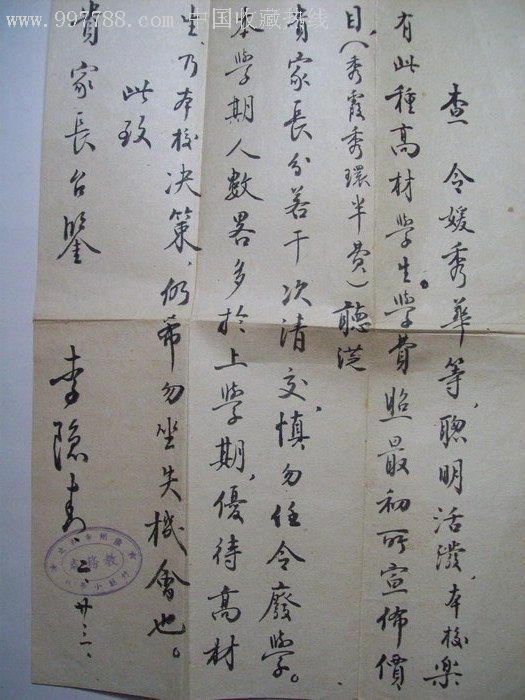 www.997788.com 中国收藏热线
查 令媛秀華等，聰明活潑，本校樂
有此種高材學生。學費照最初所宣佈價
目，（秀霞秀環半費）聽從
貴家長分若干次清交，慎勿任令廢學。
本學期人數畧多於上學期，優待高材
生，乃本校决策，仍希勿坐失機會也。
此致
貴家長台鑒
李隐
二、廿、三一、